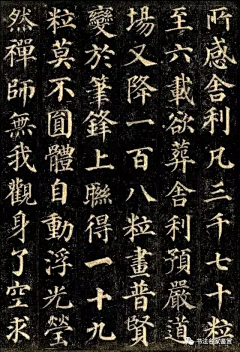 所感舍利凡三千七十粒
至六載欲葬舍利預嚴道
場又降一百八粒畫普賢
變於筆鋒上聯得一十九
粒莫不圓體自動浮光瑩
然禪師無我觀身了空求